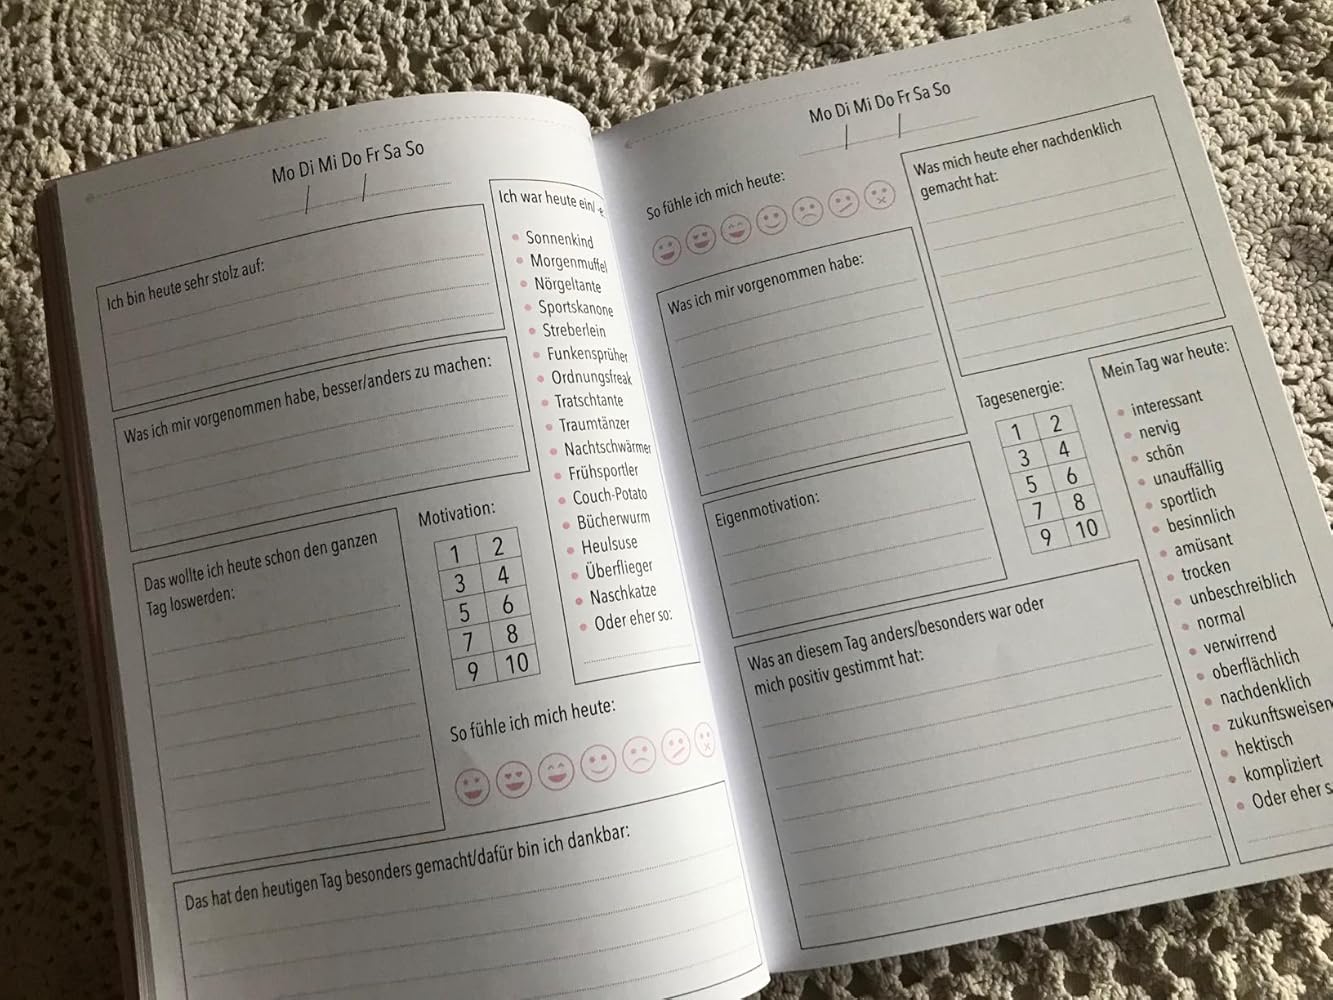 Mo Di Mi Do Fr Sa So
Ich bin heute sehr stolz auf:
Was ich mir vorgenommen habe, besser/anders zu machen:
Das wollte ich heute schon den ganzen
Tag loswerden:
Motivation:
1 2
3 4
5 6
7 8
9 10
Ich war heute ein/
Sonnenkind
Morgenmuffel
Nörgeltante
Sportskanone
Streberlein
Funkensprüher
Ordnungsfreak
Tratschtante
Traumtänzer
Nachtschwärmer
Frühsportler
Couch-Potato
Bücherwurm
Heulsuse
Überflieger
Naschkatze
Oder eher so:
So fühle ich mich heute:
Das hat den heutigen Tag besonders gemacht/dafür bin ich dankbar:
Mo Di Mi Do Fr Sa So
So fühle ich mich heute:
Was mich heute eher nachdenklich
gemacht hat:
Was ich mir vorgenommen habe:
Eigenmotivation:
Tagesenergie:
1 2
3 4
5 6
7 8
9 10
Mein Tag war heute:
interessant
nervig
schön
unauffällig
sportlich
besinnlich
amüsant
trocken
unbeschreiblich
normal
verwirrend
oberflächlich
nachdenklich
zukunftsweisen
hektisch
kompliziert
Oder eher s
Was an diesem Tag anders/besonders war oder
mich positiv gestimmt hat: